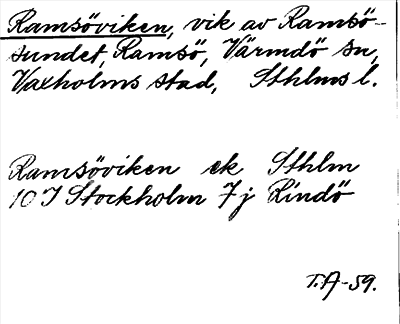 Ramsöviken, vik av Ramsö-
sundet, Ramsö, Värmdö sn,
Vaxholms stad, Sthlms l.
Ramsöviken ek Sthlm
10 I Stockholm 7 j Rindö
T.A-59.